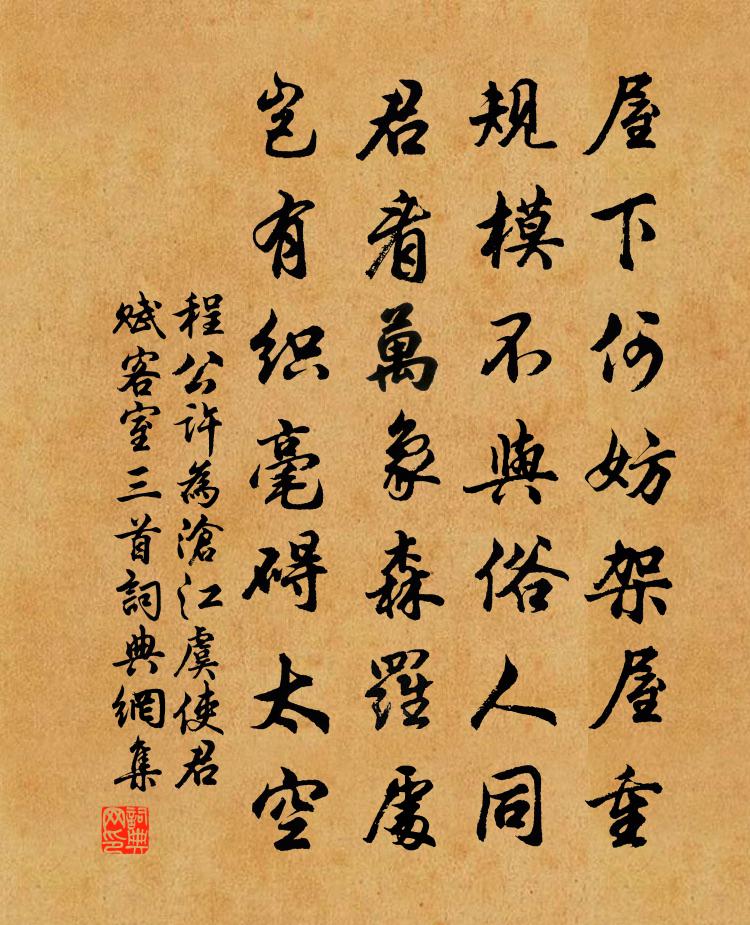 屋下何妨架屋重
規模不與俗人同
君看萬象森羅處
岂有织毫碍太空
程公許為滄江虞使君
赋客室三首詞典網集
詞典网印